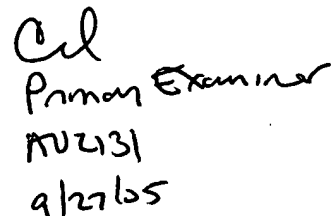 Primary Examiner
AU2131
9/27/05